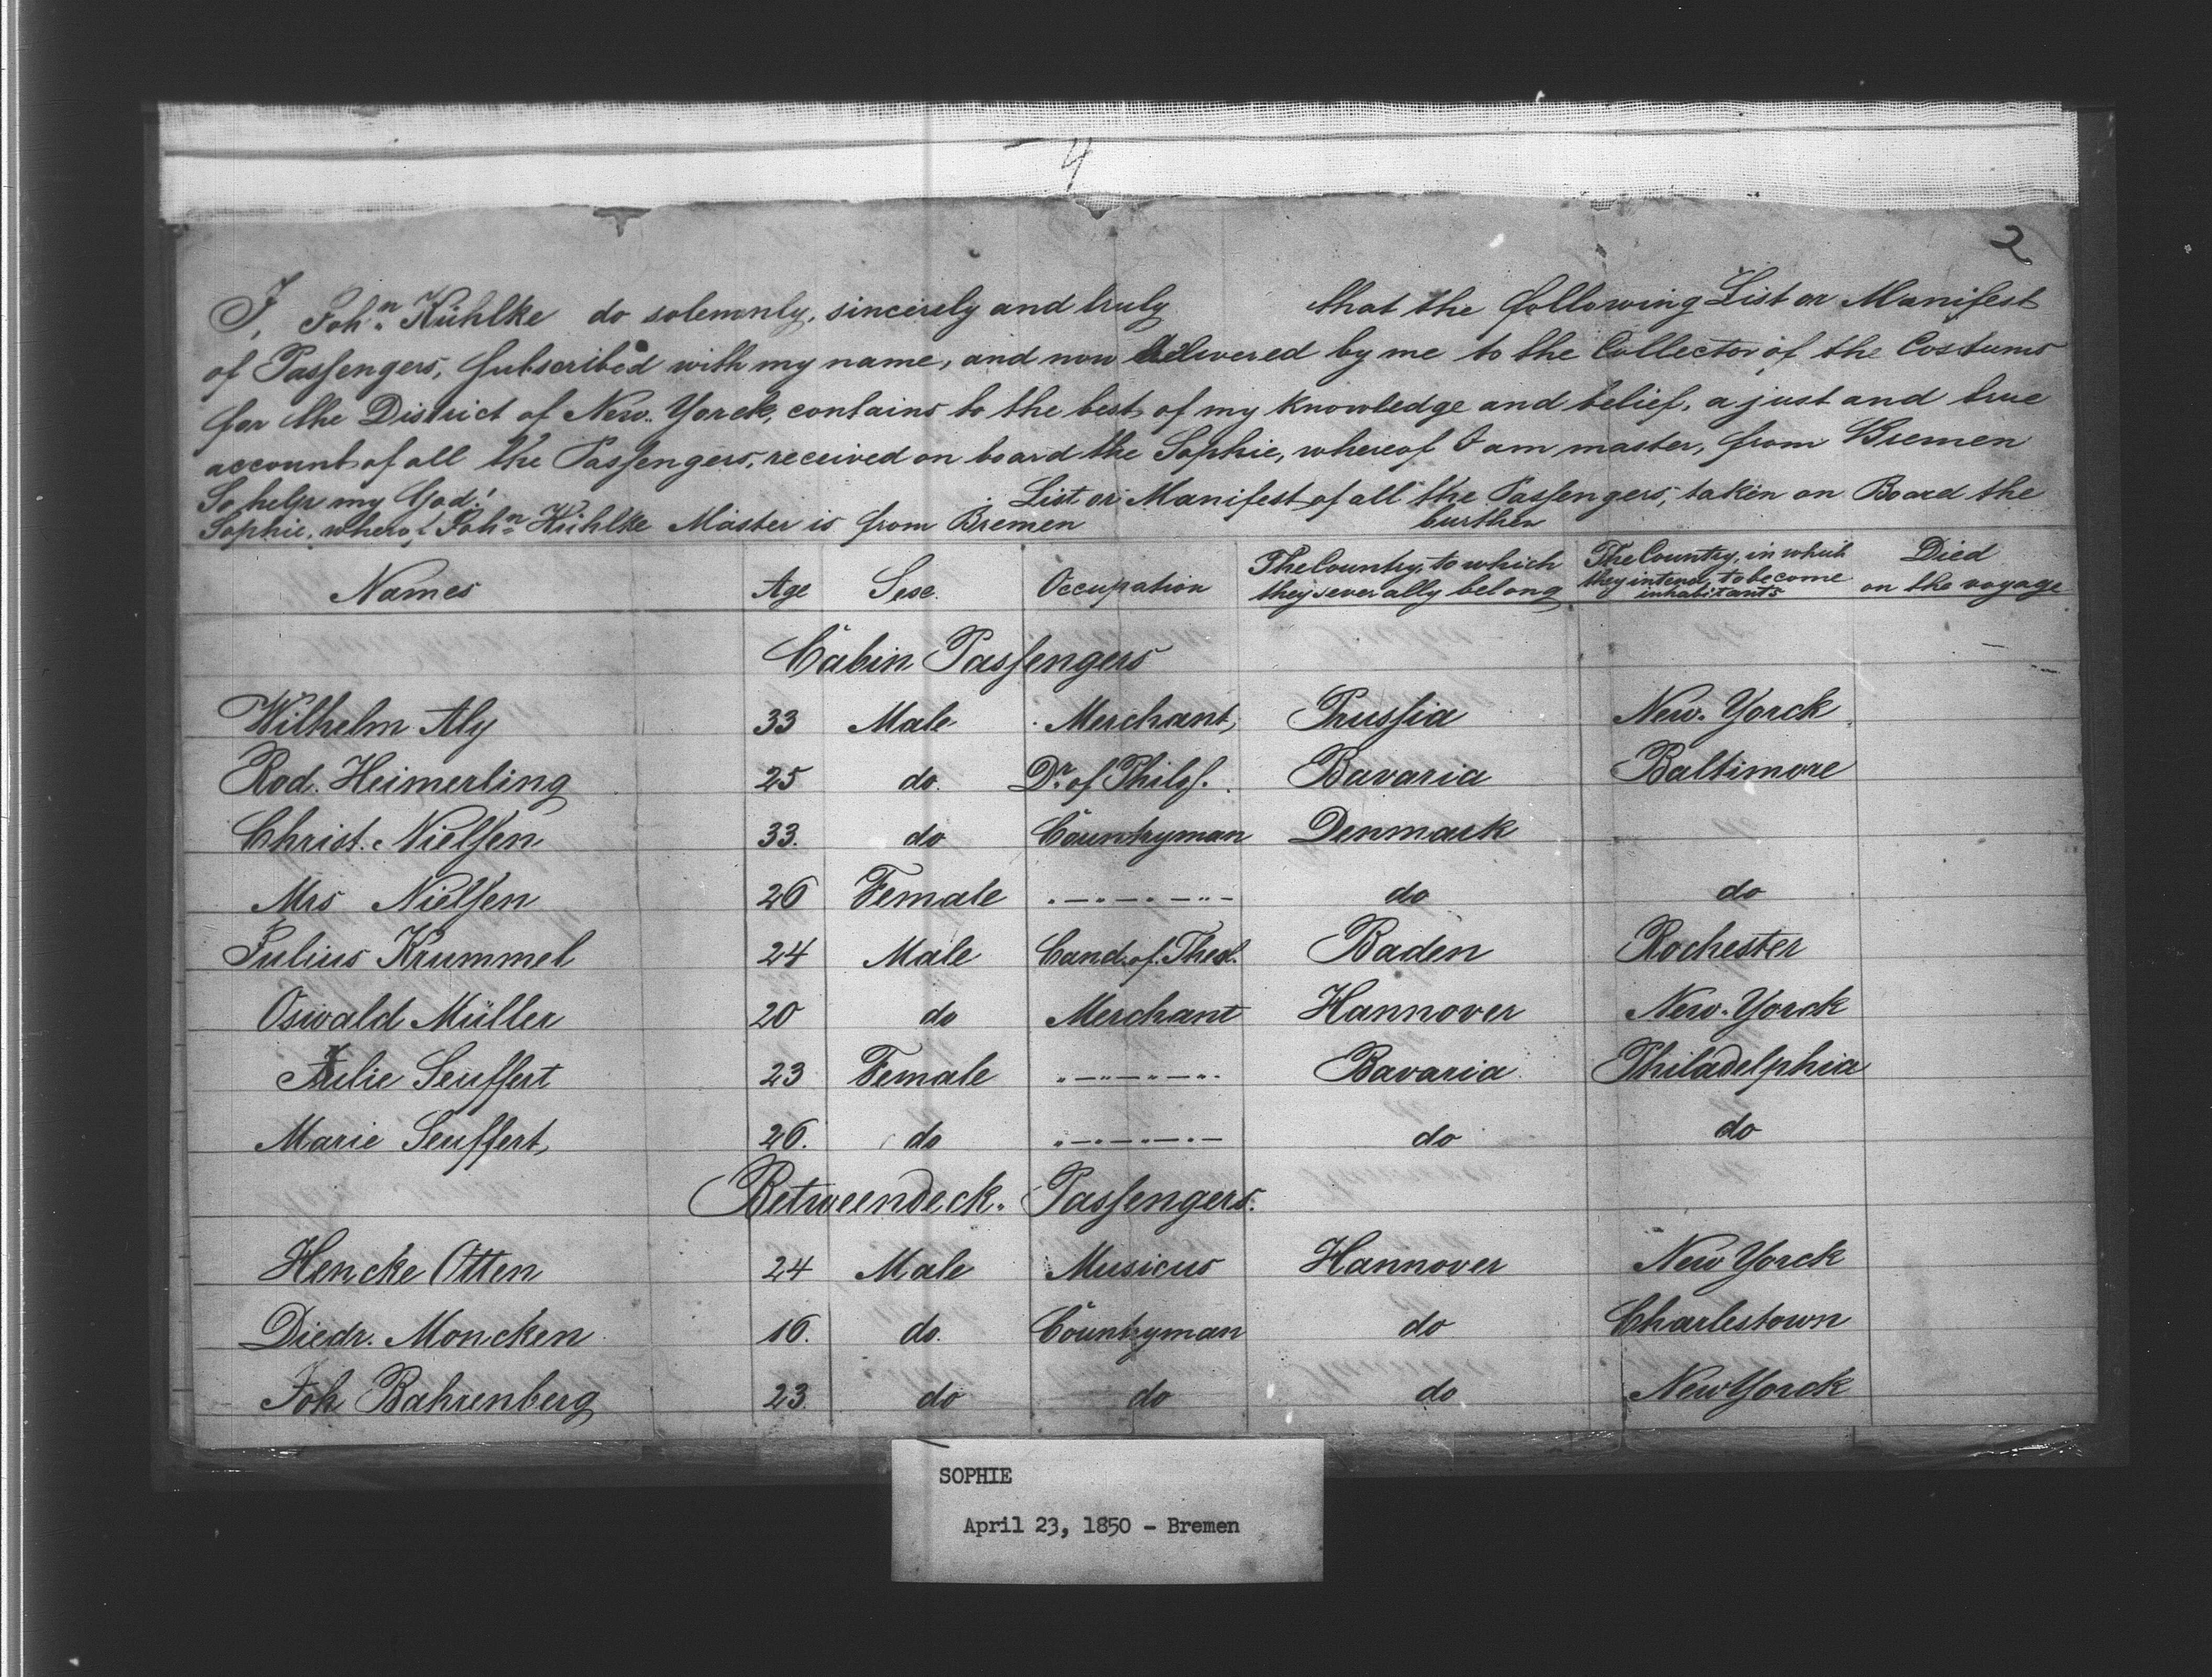 4
2
I, Joh.n Kühlke do solemnly, sincerely and truly that the following List or Manifest
of Passengers, Subscribed with my name, and now delivered by me to the Collector of the Costums
for the District of New. Yorck, contains to the best of my knowledge and belief, a just and true
account of all the Passengers, received on board the Sophie, whereof I am master, from Bremen
So help my God! List or Manifest of all the Passengers, taken on Board the
Sophie, whereof Joh.n Kühlke Master is from Bremen burthen
Names Age Sexe. Occupation The Country, to which they severally belong The Country, in which they intend to become inhabitants Died on the voyage
Cabin Passengers
Wilhelm Aly 33 Male Merchant, Prussia New. Yorck
Rod. Heimerling 25 do. Dr. of Philos. Bavaria Baltimore
Christ. Nielsen 33. do Countryman Denmark
Mrs Nielsen 26 Female do do
Julius Krummel 24 Male Cand. of Theol. Baden Rochester
Oswald Müller 20 do Merchant Hannover New. Yorck
Julie Seuffert 23 Female Bavaria Philadelphia
Marie Seuffert, 26. do do do
Betweendeck. Passengers.
Hencke Otten 24 Male Musicus Hannover New Yorck
Diedr. Moncken 16. do. Countryman do Charlestown
Joh Bahrenberg 23. do do do New Yorck
SOPHIE
April 23, 1850 - Bremen